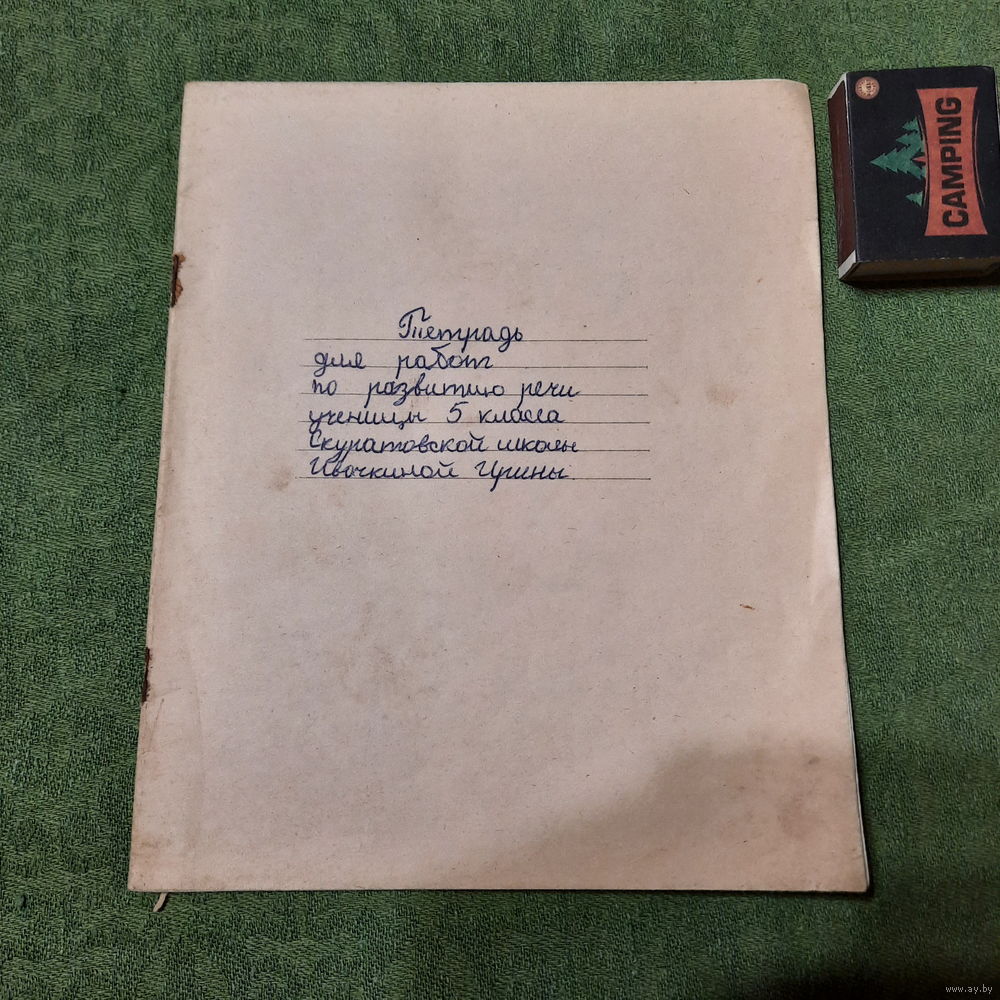 Тетрадь
для работ
по развитию речи
ученицы 5 класса
Скуратовской школы
Ивочкиной Ирины
CAMPING
www.ay.by